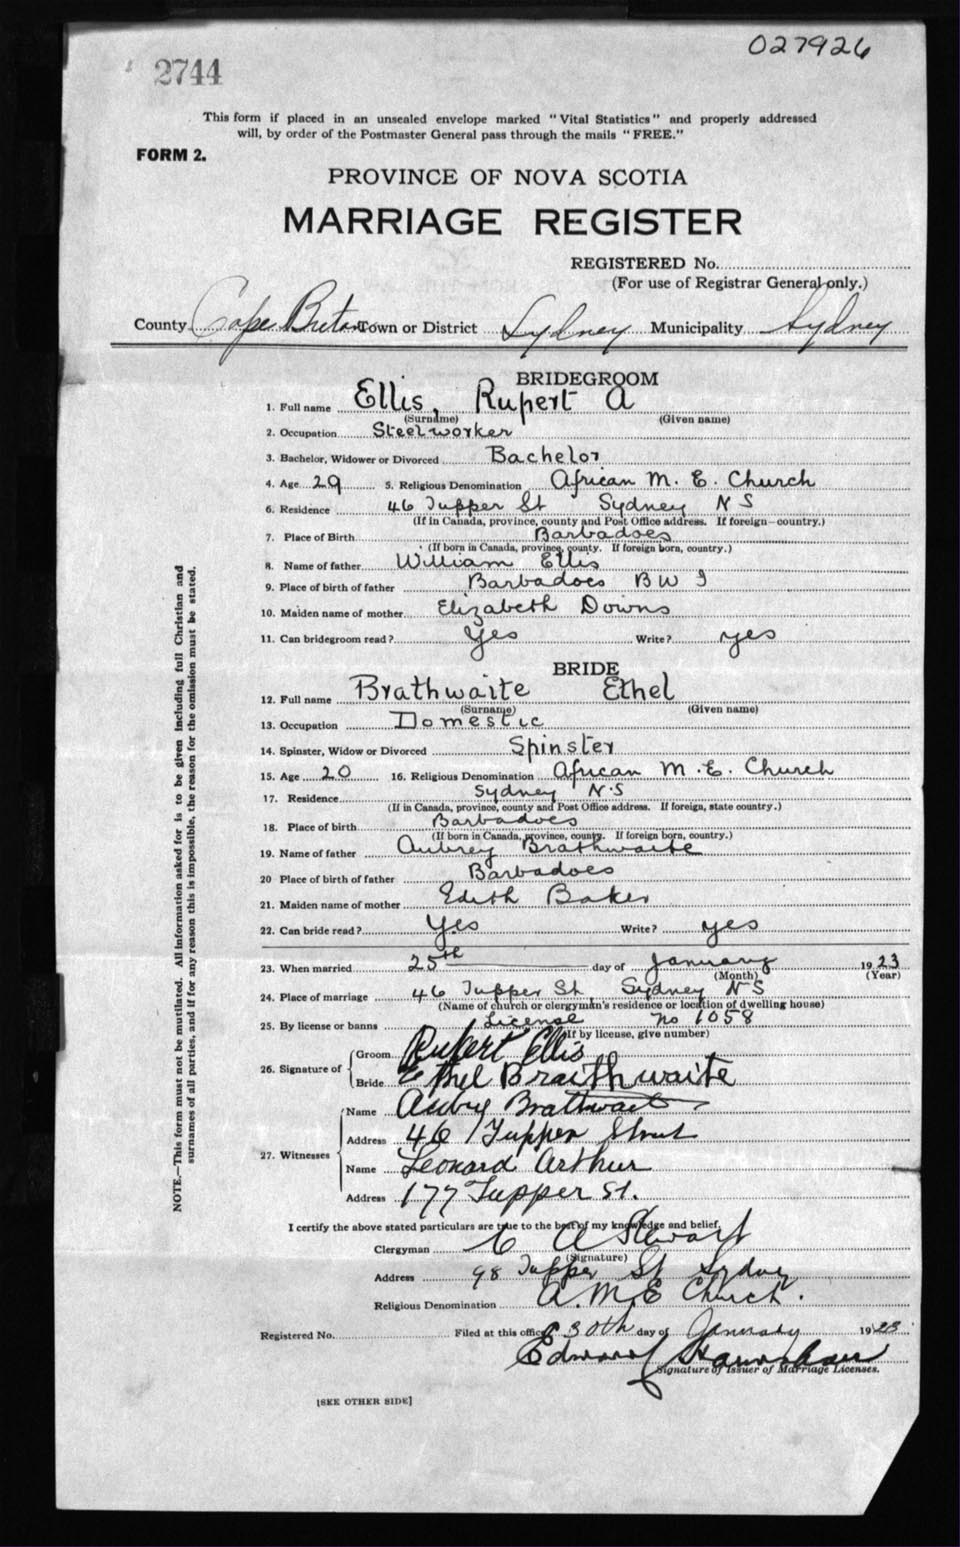 027926
2744
This form if placed in an unsealed envelope marked "Vital Statistics" and properly addressed
will, by order of the Postmaster General pass through the mails "FREE."
FORM 2.
PROVINCE OF NOVA SCOTIA
MARRIAGE REGISTER
REGISTERED No.
(For use of Registrar General only.)
County Cape Breton Town or District Sydney Municipality Sydney
BRIDEGROOM
1. Full name Ellis, Rupert A
(Surname) (Given name)
2. Occupation Steelworker
3. Bachelor, Widower or Divorced Bachelor
4. Age 29 5. Religious Denomination African M. E. Church
6. Residence 46 Tupper St Sydney N S
(If in Canada, province, county and Post Office address. If foreign—country.)
7. Place of Birth Barbadoes
(If born in Canada, province, county. If foreign born, country.)
8. Name of father William Ellis
9. Place of birth of father Barbadoes B W I
10. Maiden name of mother Elizabeth Downs
11. Can bridegroom read? Yes Write? yes
BRIDE
12. Full name Brathwaite Ethel
(Surname) (Given name)
13. Occupation Domestic
14. Spinster, Widow or Divorced Spinster
15. Age 20 16. Religious Denomination African M. E. Church
17. Residence Sydney N.S
(If in Canada, province, county and Post Office address. If foreign, state country.)
18. Place of birth Barbadoes
(If born in Canada, province, county. If foreign born, country.)
19. Name of father Aubrey Brathwaite
20 Place of birth of father Barbadoes
21. Maiden name of mother Edith Baker
22. Can bride read? Yes Write? yes
23. When married 25th day of January 1923
(Month) (Year)
24. Place of marriage 46 Tupper St Sydney N S
(Name of church or clergyman's residence or location of dwelling house)
25. By license or banns License No 1058
(If by license, give number)
26. Signature of Groom Rupert Ellis
Bride Ethel Braithwaite
27. Witnesses Name Aubry Brathwait
Address 46 Tupper Street
Name Leonard Arthur
Address 177 Tupper St.
I certify the above stated particulars are true to the best of my knowledge and belief.
Clergyman C A Stewart
(Signature)
Address 98 Tupper St Sydney
Religious Denomination A.M.E Church.
Registered No. Filed at this office 30th day of January 1923
Edward
Signature of Issuer of Marriage Licenses.
[SEE OTHER SIDE]
NOTE.—This form must not be mutilated. All information asked for is to be given including full Christian and
surnames of all parties, and if for any reason this is impossible, the reason for the omission must be stated.